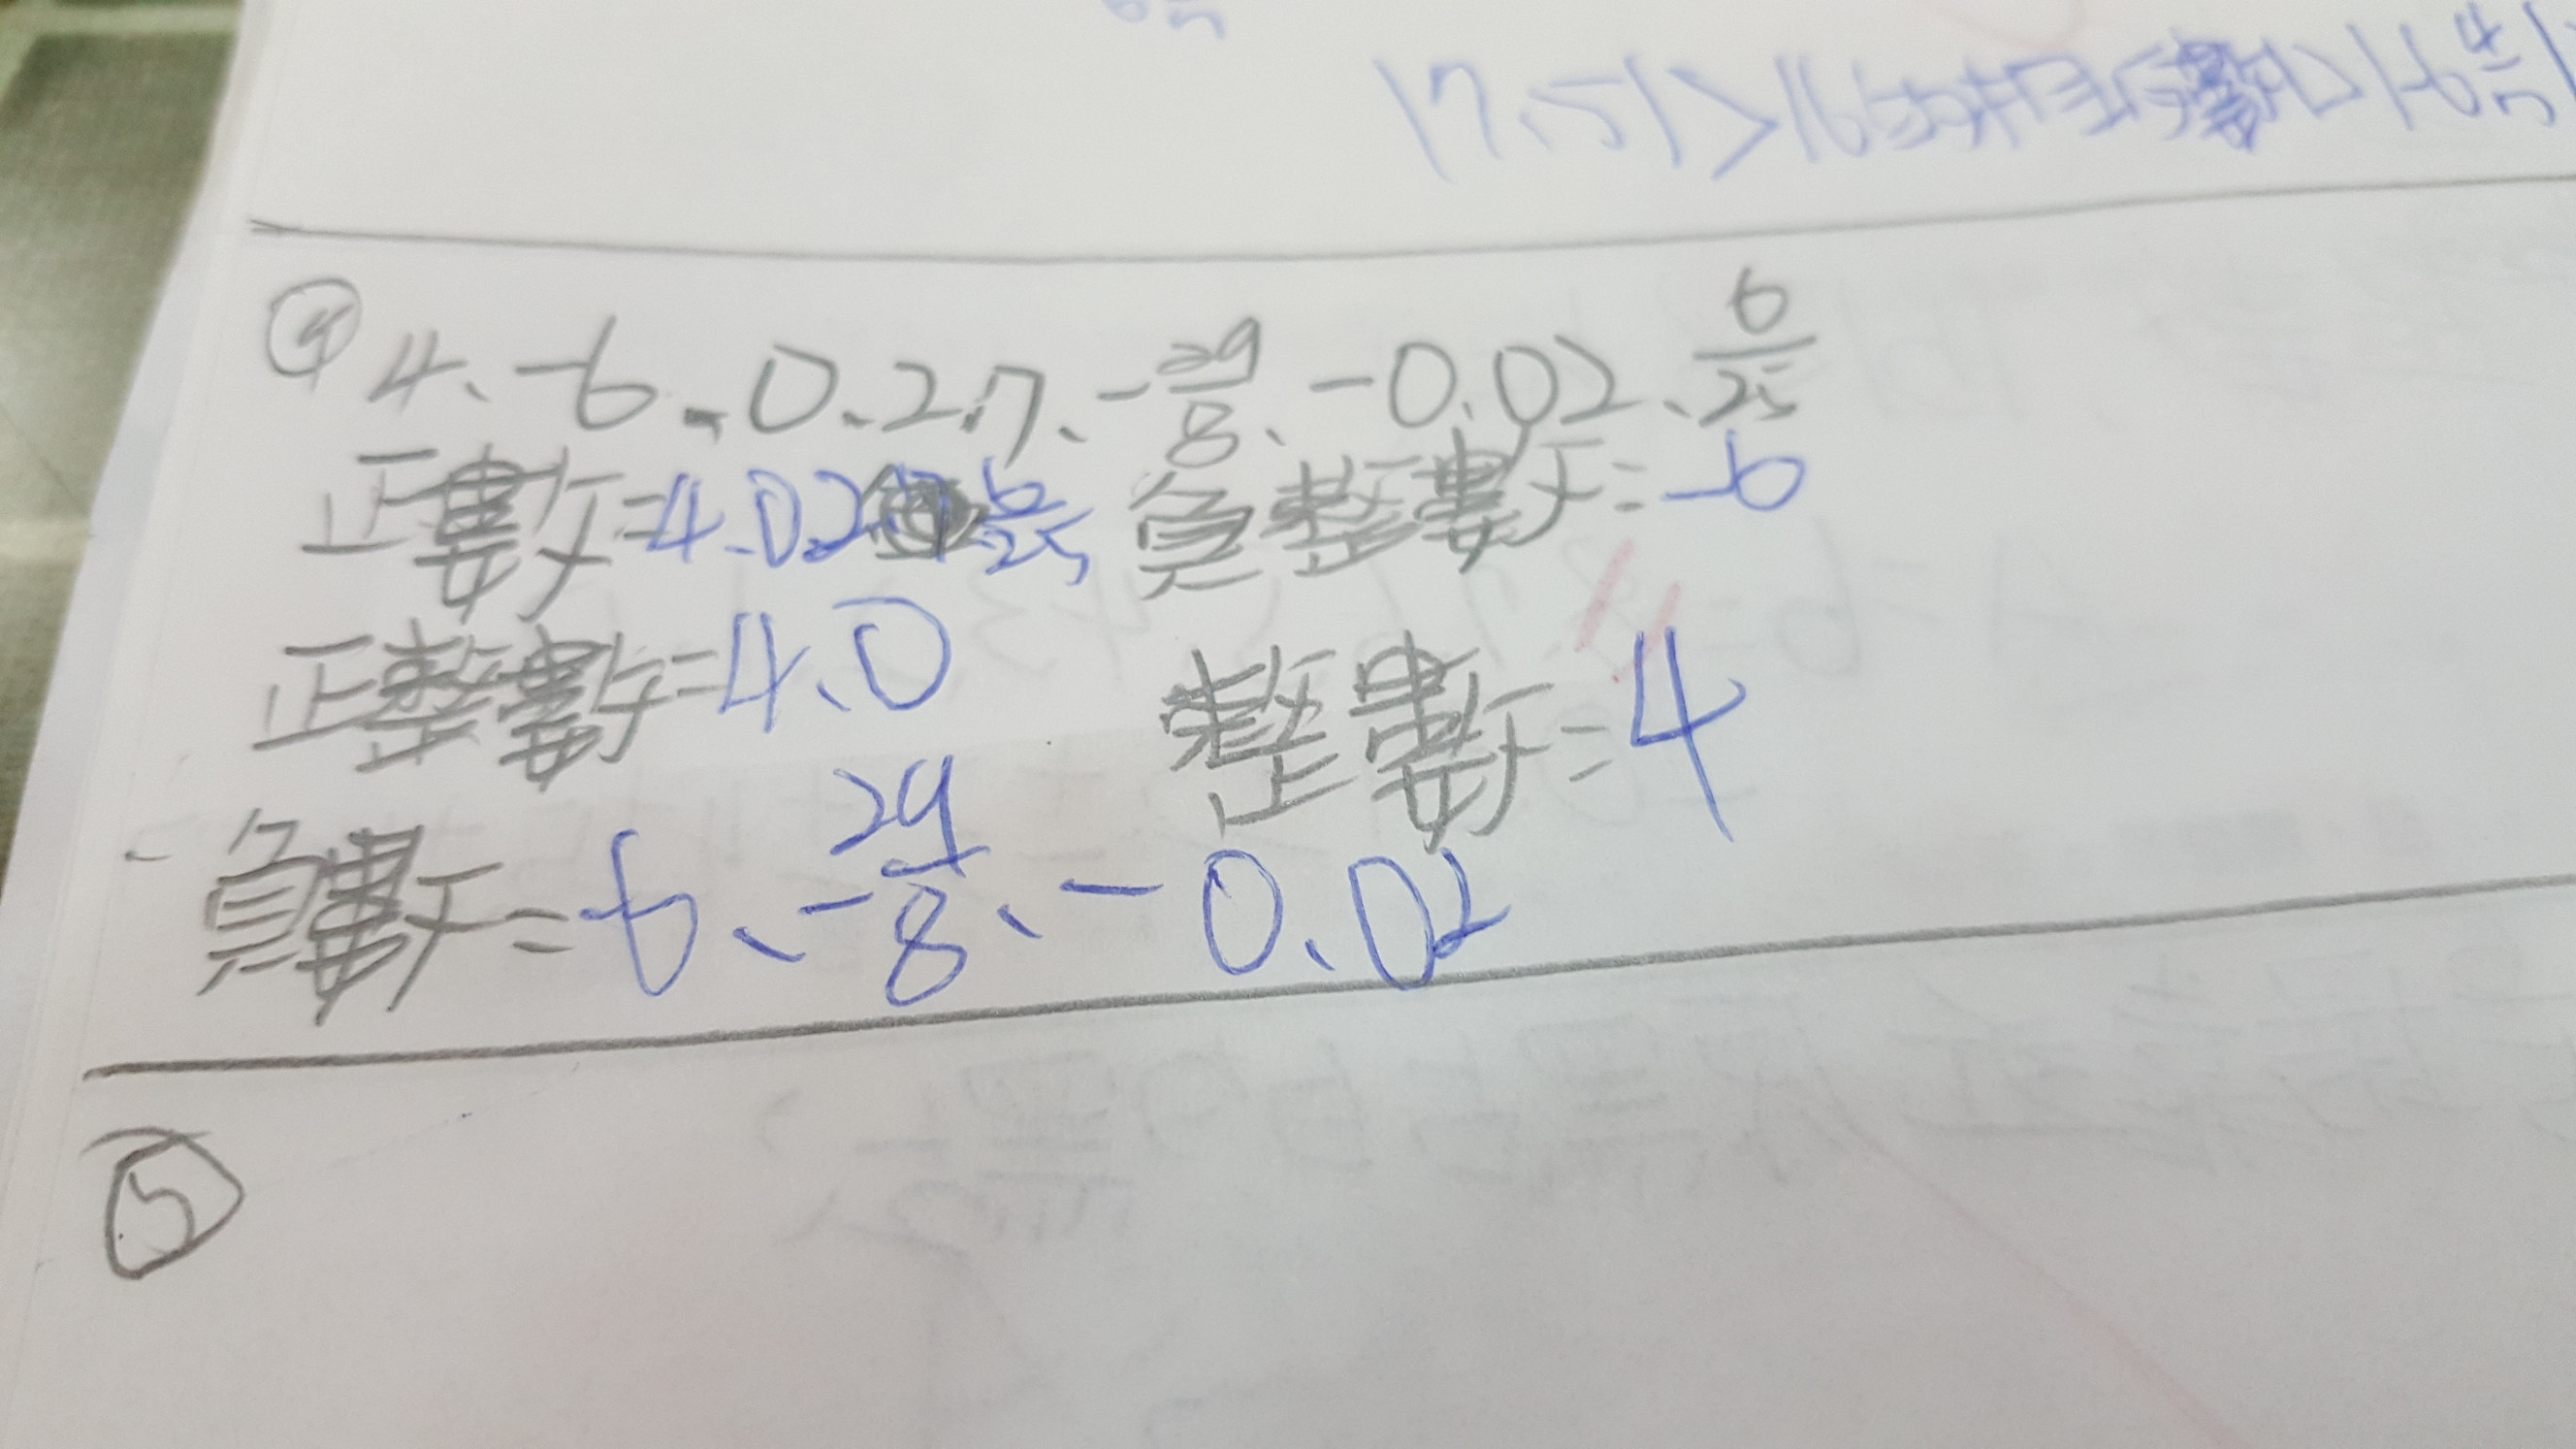 |7.5|>|6
|-6 4/5|
④ 4、-6、0、2.7、-29/8、-0.02、6/25
正數=4、0、2.7 6/25 負整數=-6
正整數=4、0 整數=4
負數=-6、-29/8、-0.02
⑤